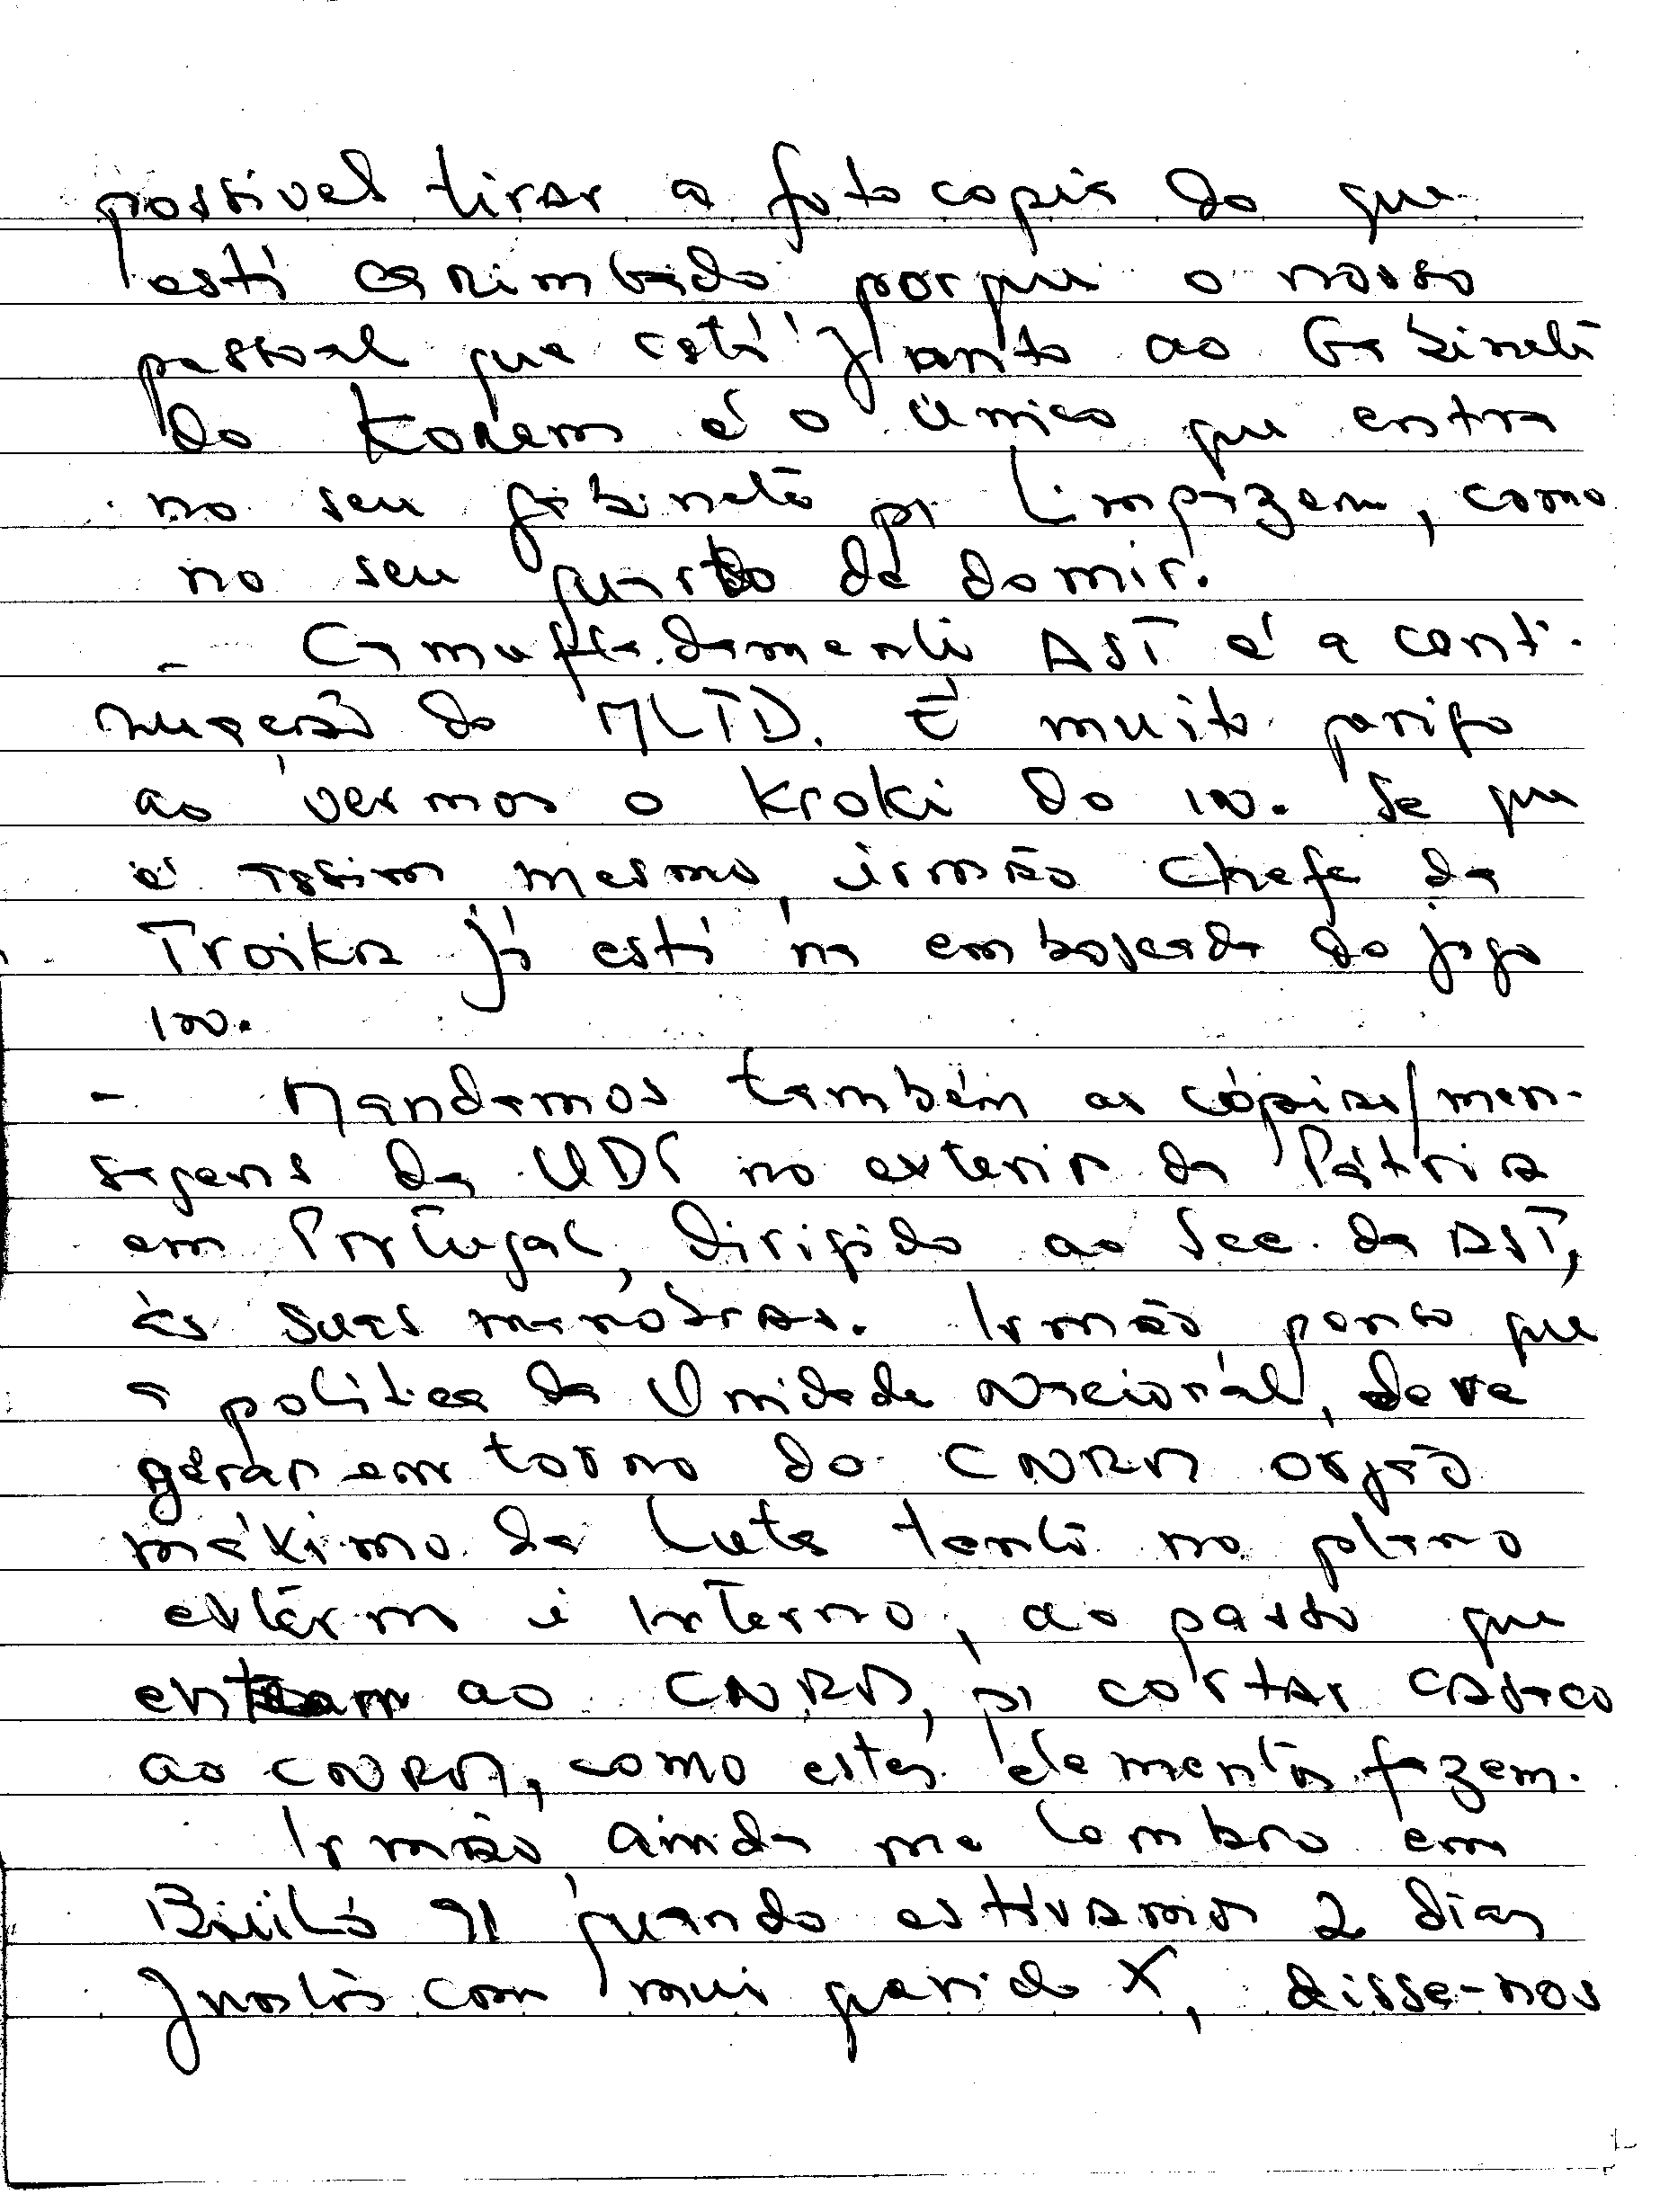 possível tirar a fotocopia do que
está carimbado porque o nosso
pessoal que está junto ao Gabinete
do Korem é o único que entra
no seu gabinete p/ limpezem, como
no seu quarto de domir.
- Camufladamente AST é a conti-
nuação do MLTD. É muito perigo
ao vermos o kroki do in. Se que
é assim mesmo, irmão chefe da
Troika já está na emboscada do jogo
in.
- Mandamos também as cópias/men-
sagens da UDT no exterir da Pátria
em Portugal, dirigido ao Sec. da AST,
às suas manobras. Irmão penso que
a política da Unidade Nacional, deve
gerar em torno do CNRM orgão
máximo da Luta tanto no plano
extêrno e interno, ao passo que
entram ao CNRM, p/ cortar casaco
ao CNRM, como estes elementos fazem.
Irmão ainda me lembro em
91 quando estivamos 2 dias
Juntos com mui querido X, disse-nos